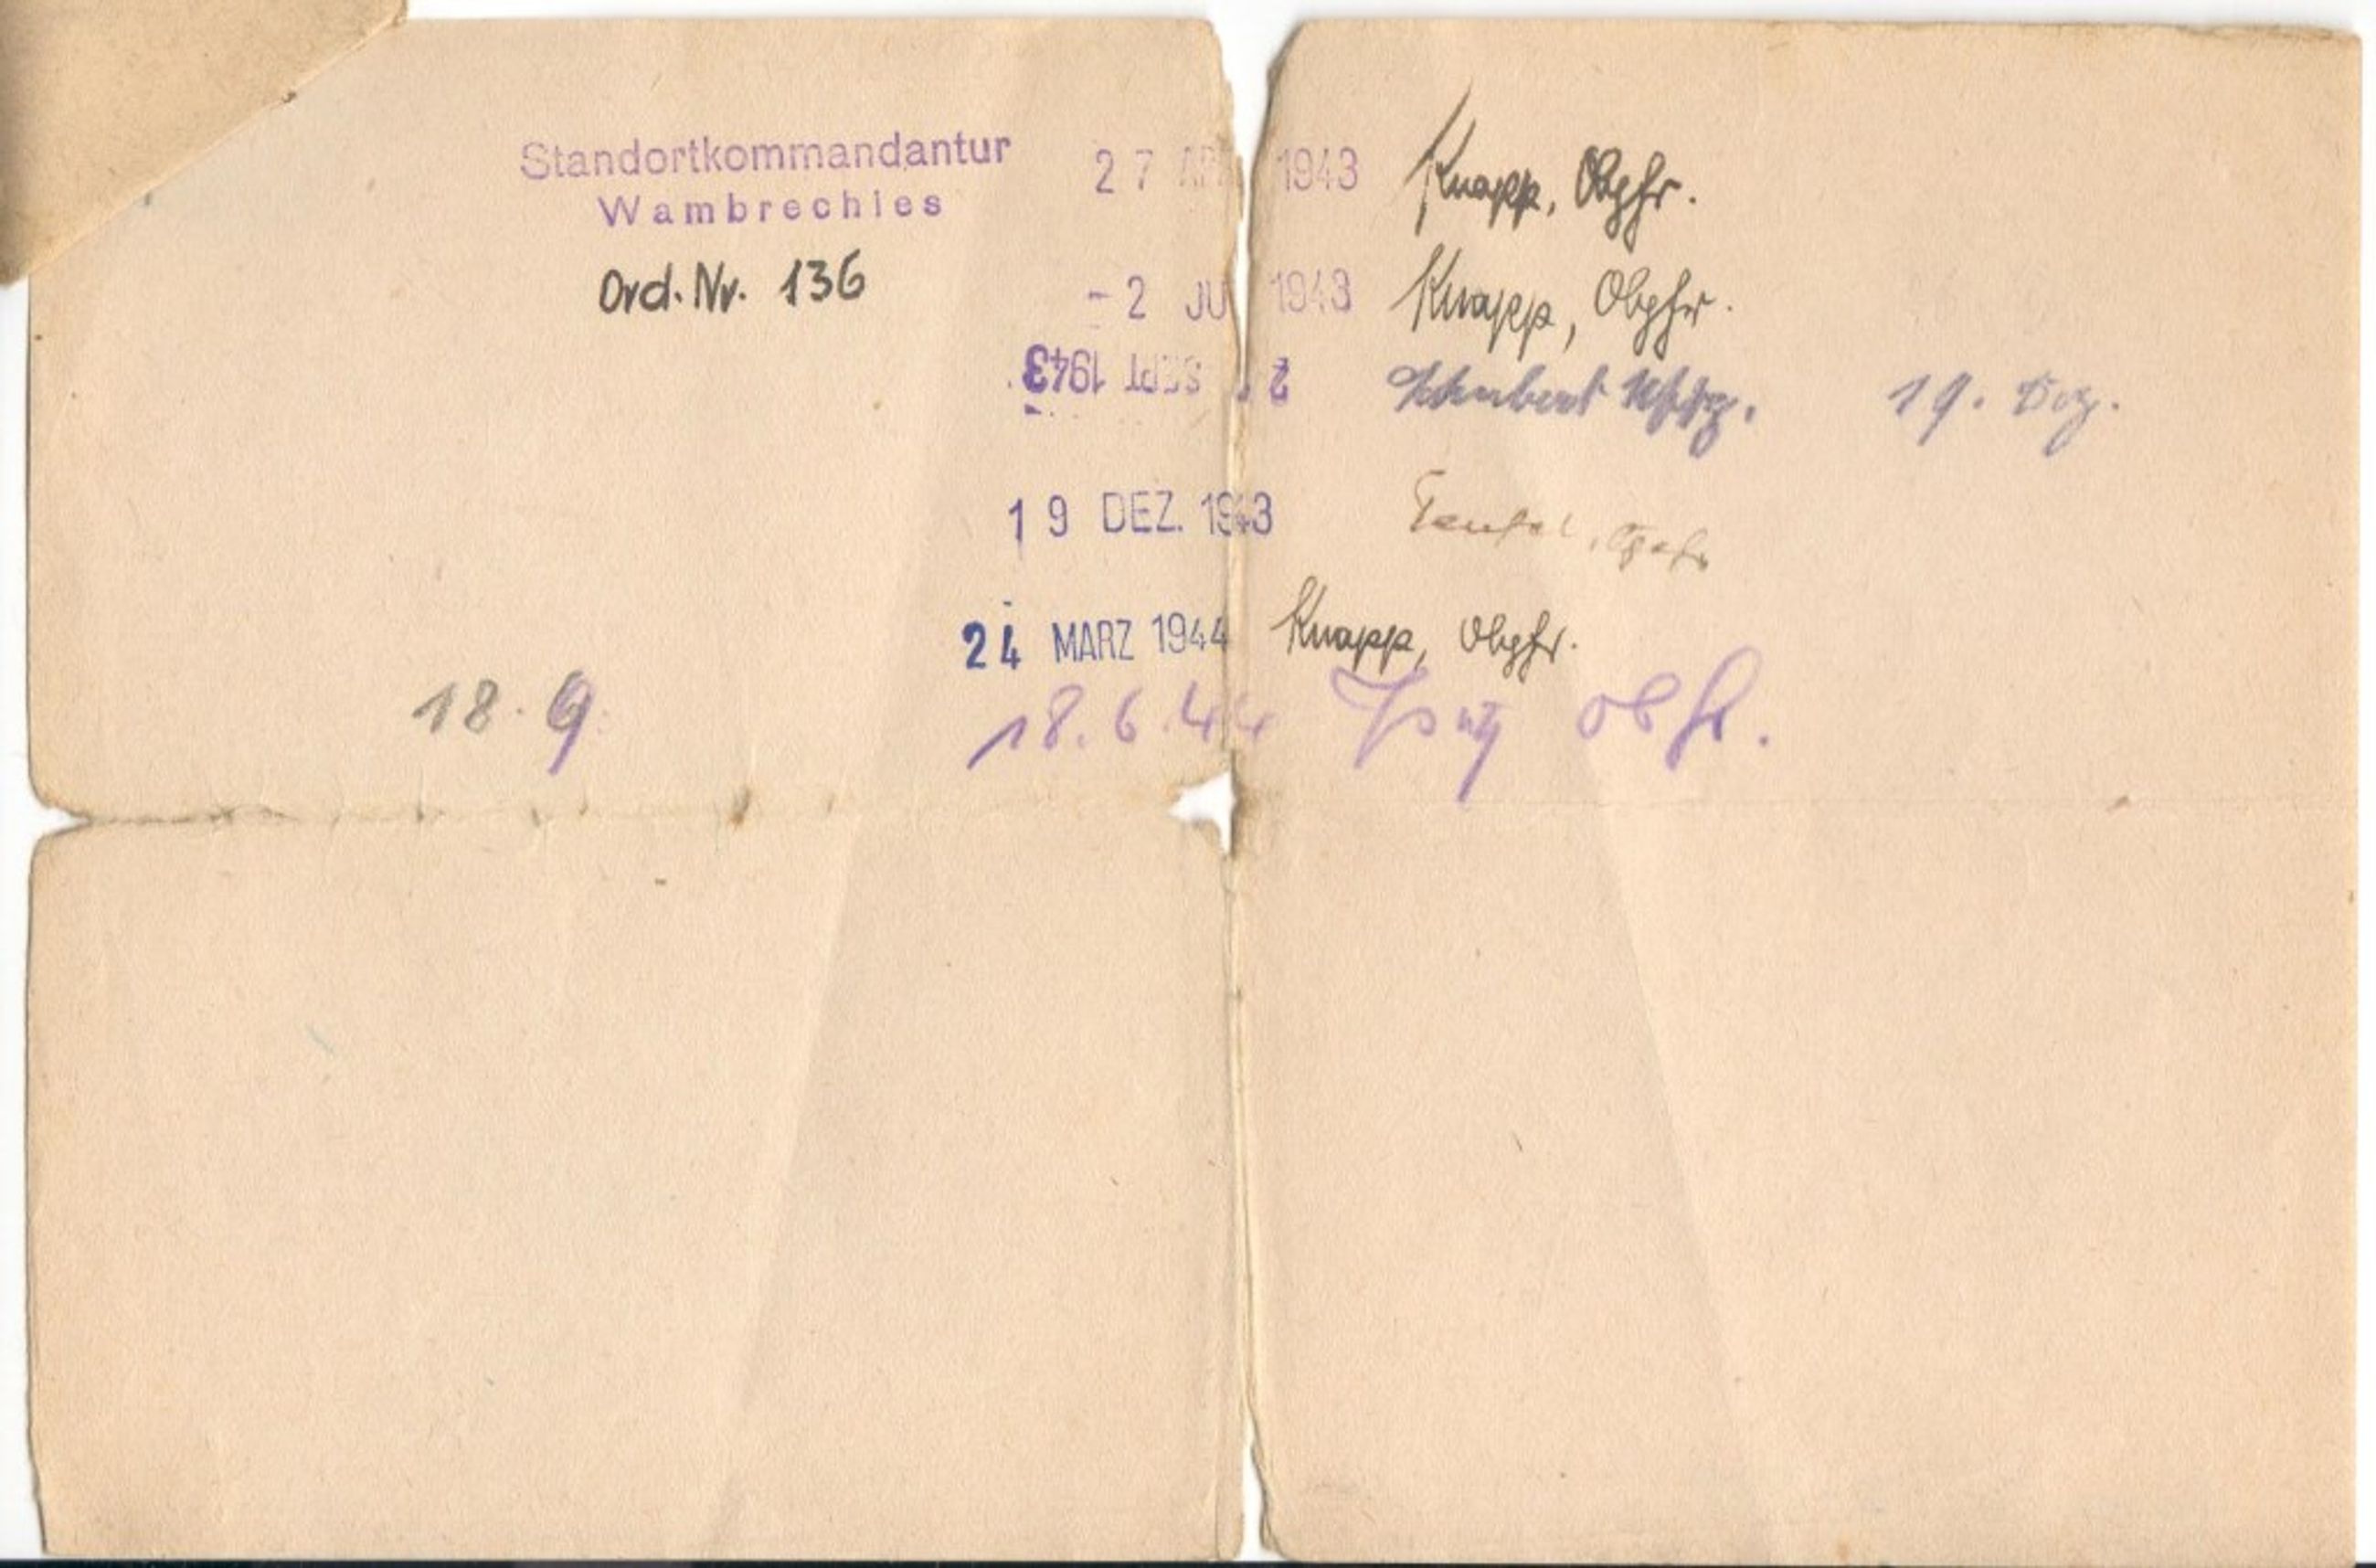 Standortkommandantur
Wambrechies
Ord. Nr. 136
27 APR 1943 Knapp, Obgfr.
- 2 JU 1943 Knapp, Obgfr.
2 SEPT 1943 Schubert Uffz. 19. Dez.
19 DEZ. 1943 Teufel,
24 MARZ 1944 Knapp, Obgfr.
18. 9. 18.6.44